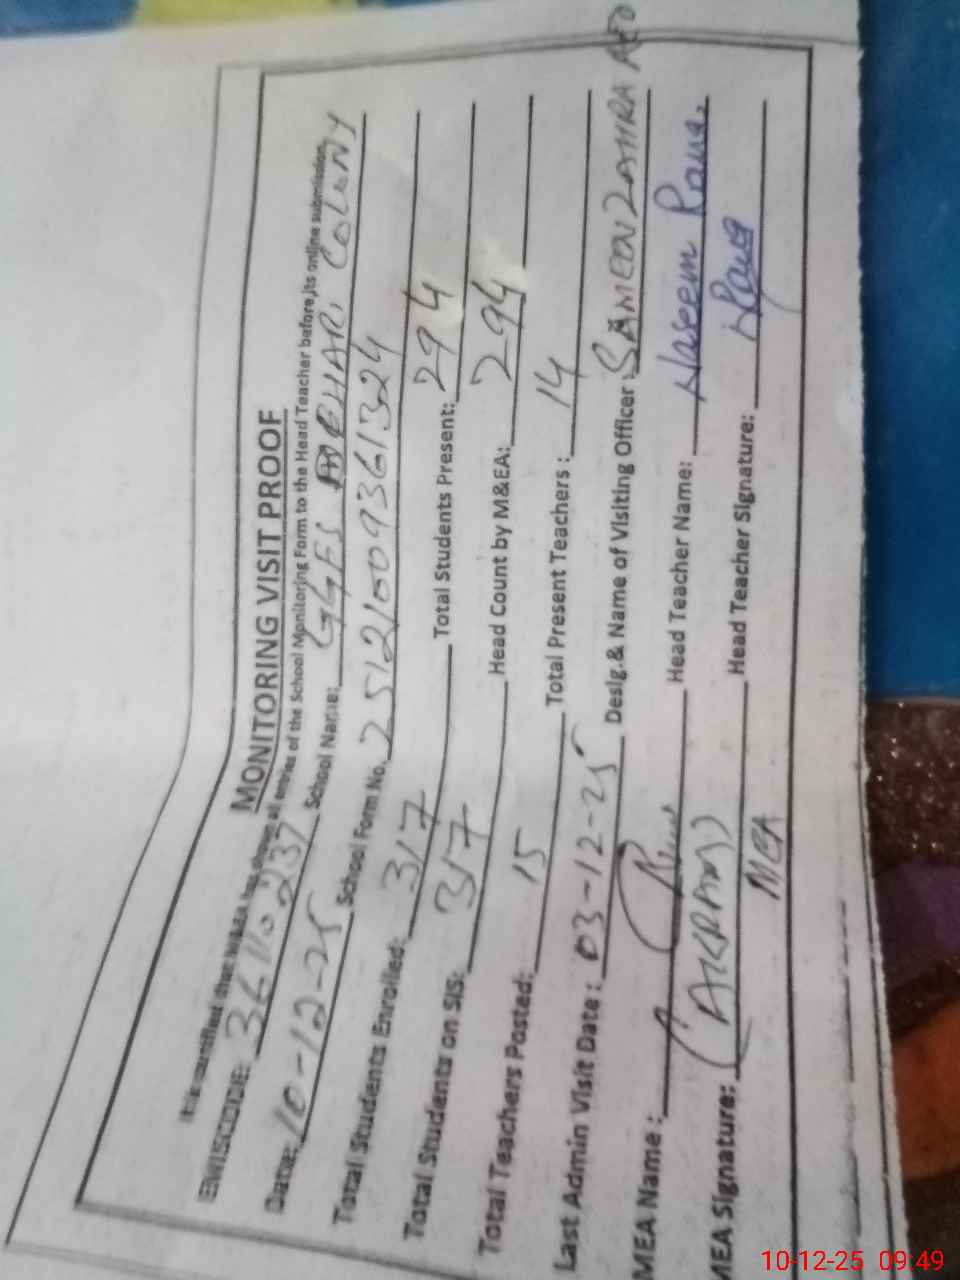 MONITORING VISIT PROOF
It is certified that MEA has shown all entries of the School Monitoring Form to the Head Teacher before its online submission
EMISCODE: 36110237 School Name: GGES MEHARI COLONY
Date: 10-12-25 School Form No. 25121009361324
Total Students Enrolled: 317 Total Students Present: 294
Total Students on SIS: 317 Head Count by M&EA: 294
Total Teachers Posted: 15 Total Present Teachers : 14
Last Admin Visit Date : 03-12-25 Desig.& Name of Visiting Officer : SAMEEN ZAHRA AEO
MEA Name : Head Teacher Name: Naseem Rana.
MEA Signature: (AKRAM) Head Teacher Signature: NRana
MEA
10-12-25 09:49